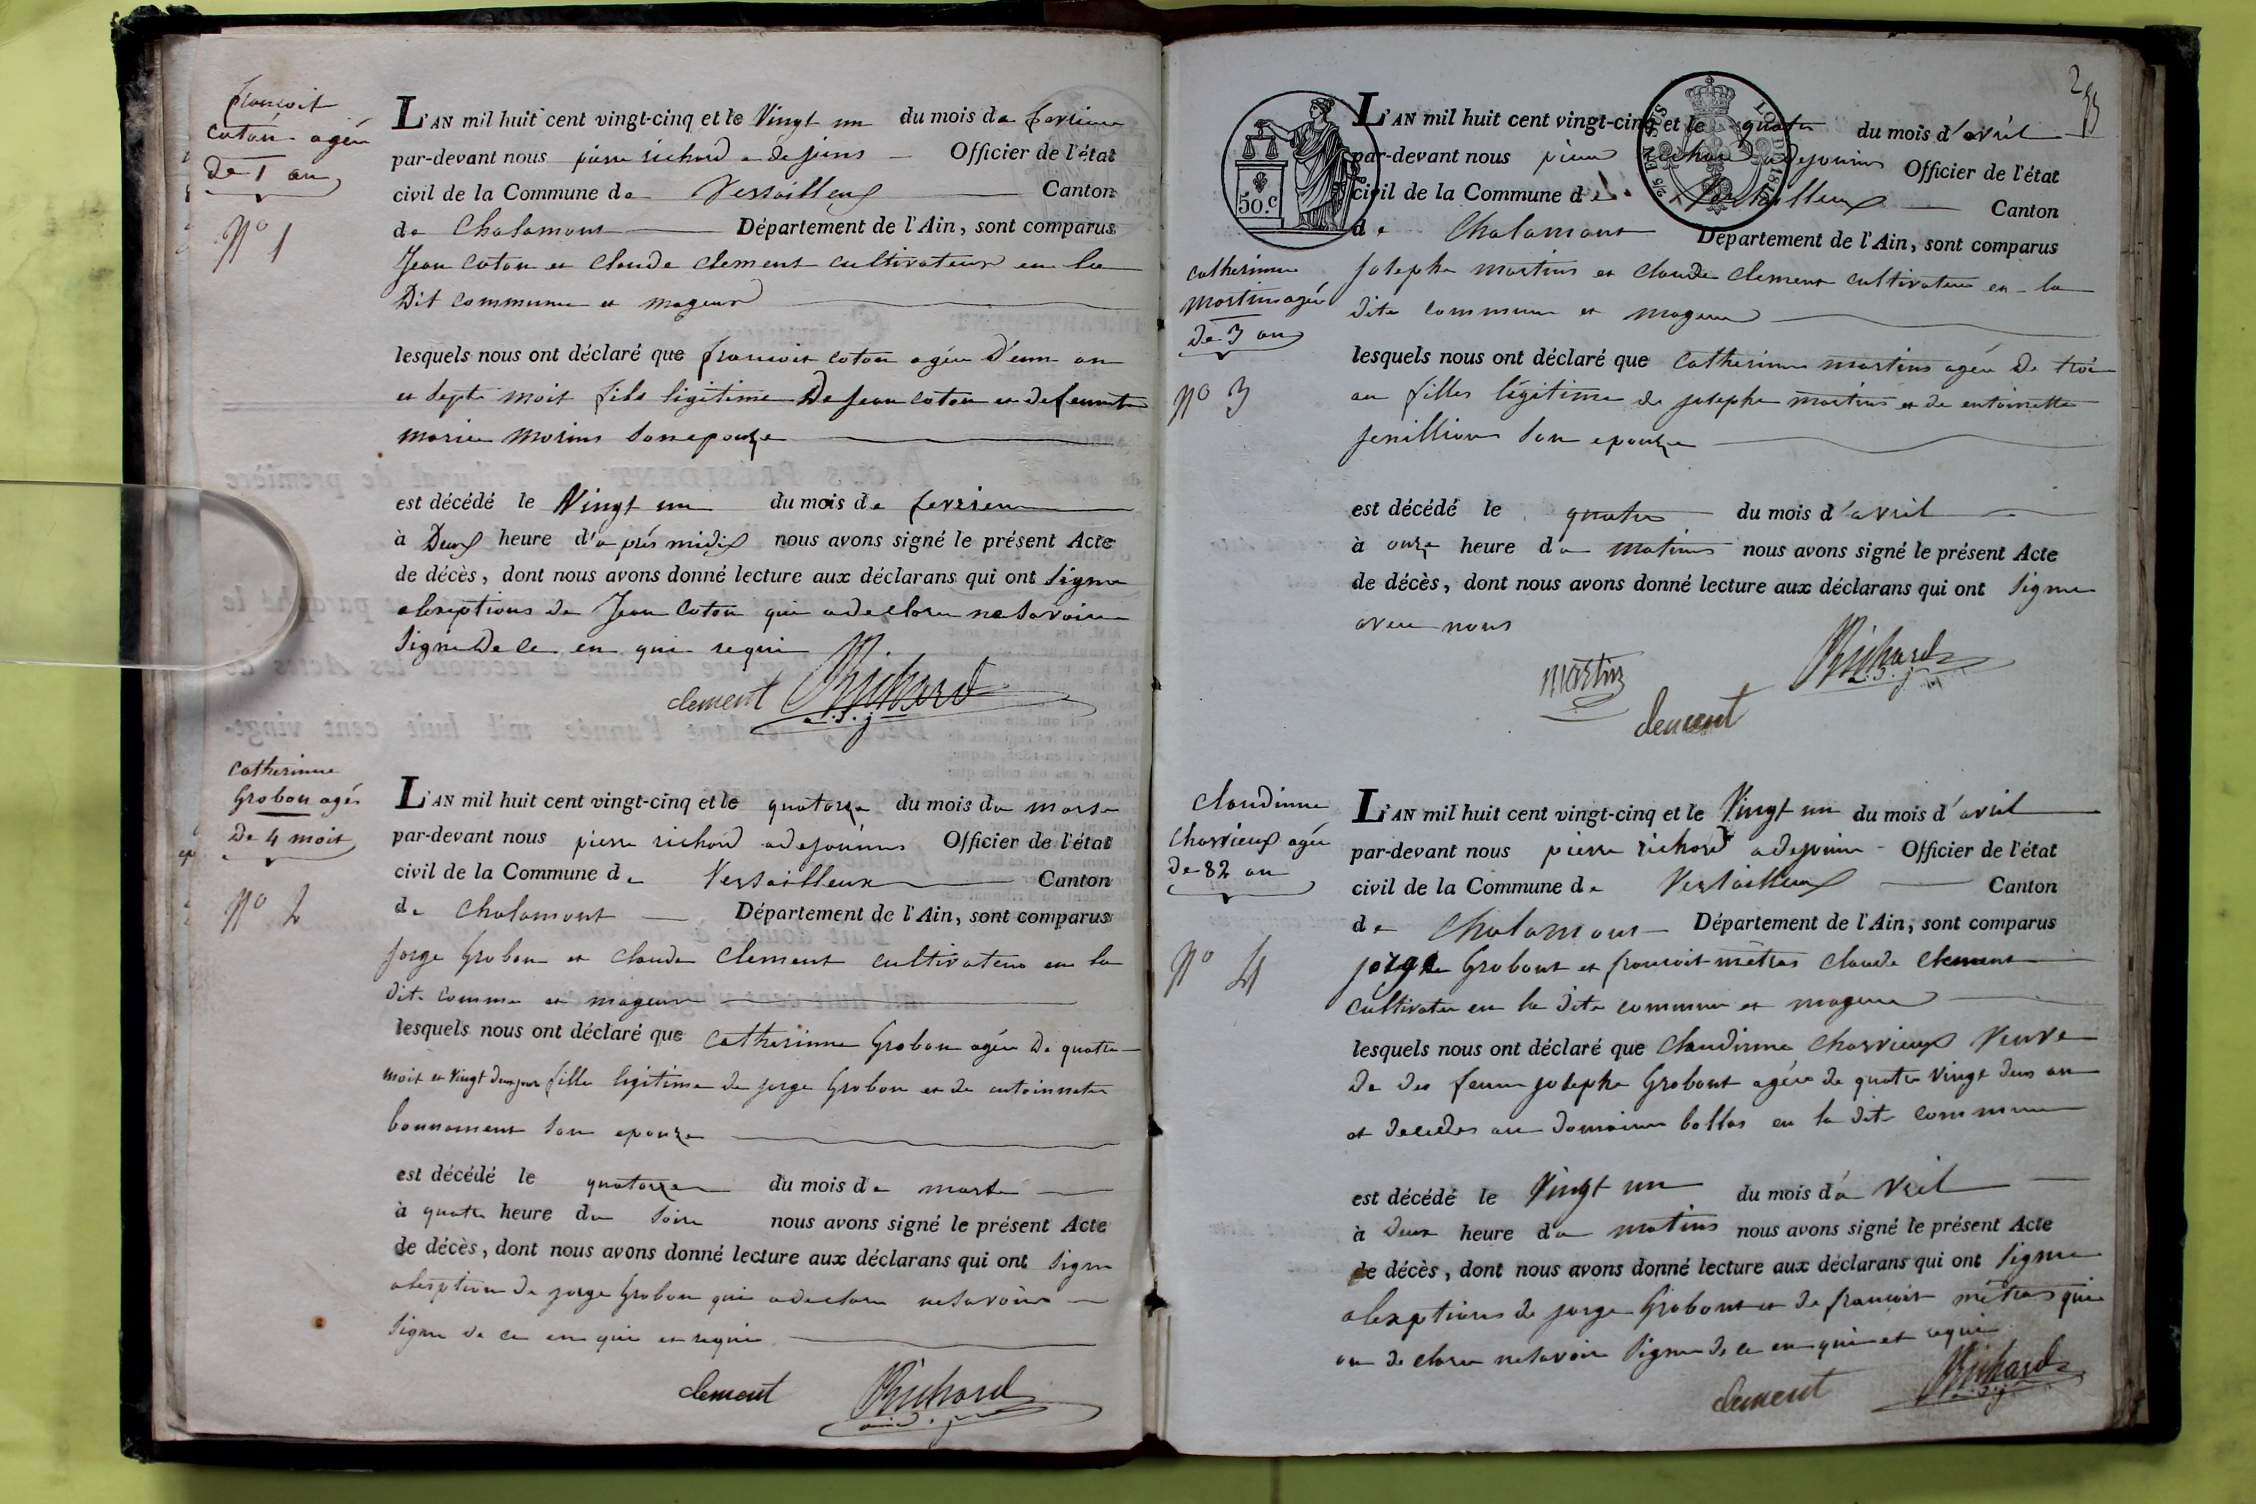 francoit
coton agée
De 1 an
N° 1
L'AN mil huit cent vingt-cinq et le Vingt un du mois de fevrieur
par-devant nous pierre richard adejoins Officier de l'état
civil de la Commune de Versailleux Canton
de Chalamont Département de l'Ain, sont comparus
Jean coton et claude clement cultivateur en la
Dit commune et mageur
lesquels nous ont déclaré que francoit coton agée d'eun an
et septe moit fils ligitime De Jean coton et de feunte
marie morins son epouze
est décédé le Vingt un du mois de fevrieu
à Deux heure d'a prés midix nous avons signé le présent Acte
de décès, dont nous avons donné lecture aux déclarans qui ont signe
alexeptions de Jean Coton qui adeclare nesavoire
signe De ce en qui requi
clement PRichard
a.d.j
catherinne
Grobon agée
De 4 moit
N° 2
L'AN mil huit cent vingt-cinq et le quatorze du mois de marse
par-devant nous pierre richard adejoinns Officier de l'état
civil de la Commune de Versailleux Canton
de Chalamont Département de l'Ain, sont comparus
jorge Grobon et claude clement cultivateur en la
dite comme et mageur
lesquels nous ont déclaré que catherinne Grobon agée De quatre
moit et vingt deux jour fille ligitime de jorge Grobon et de entoinnette
bonnament son epouze
est décédé le quatorze du mois de marse
à quatre heure du soire nous avons signé le présent Acte
de décès, dont nous avons donné lecture aux déclarans qui ont signe
alexption De jorge Grobon qui adeclare nesavoire
signe de ce en qui et requi
clement PRichard
2
50.c
L'AN mil huit cent vingt-cinq et le quatre du mois d'avril
par-devant nous pierre richard adejoins Officier de l'état
civil de la Commune de Versailleux Canton
de Chalamont Département de l'Ain, sont comparus
catherinne
martins agée
De 3 an
N° 3
josephe martins et claude clement cultivateur en la
dite commune et mageur
lesquels nous ont déclaré que catherinne martins agée De troi
an filles légitime de josephe martins et de entoinette
jenillion son epouze
est décédé le quatre du mois d'avril
à onze heure du matins nous avons signé le présent Acte
de décès, dont nous avons donné lecture aux déclarans qui ont signe
avec nous
martin PRichard
clement
claudinne
charvieux agée
de 82 an
N° 4
L'AN mil huit cent vingt-cinq et le Vingt un du mois d'avril
par-devant nous pierre richard adejoins Officier de l'état
civil de la Commune de Versailleux Canton
de Chalamont Département de l'Ain, sont comparus
jorge Grobont et francoit mètras claude clement
cultivateu en la dite commune et mageur
lesquels nous ont déclaré que claudinne charvieux veuve
De des feun josephe Grobont agée de quatre vingt deux an
et decedes au domainne bollas en la dite commune
est décédé le Vingt un du mois d'a vril
à deux heure du matins nous avons signé le présent Acte
de décès, dont nous avons donné lecture aux déclarans qui ont signe
alexptions de jorge Grobont et de francoit mètras qui
on declare nesavoir signe de ce en qui et requi
clement PRichard